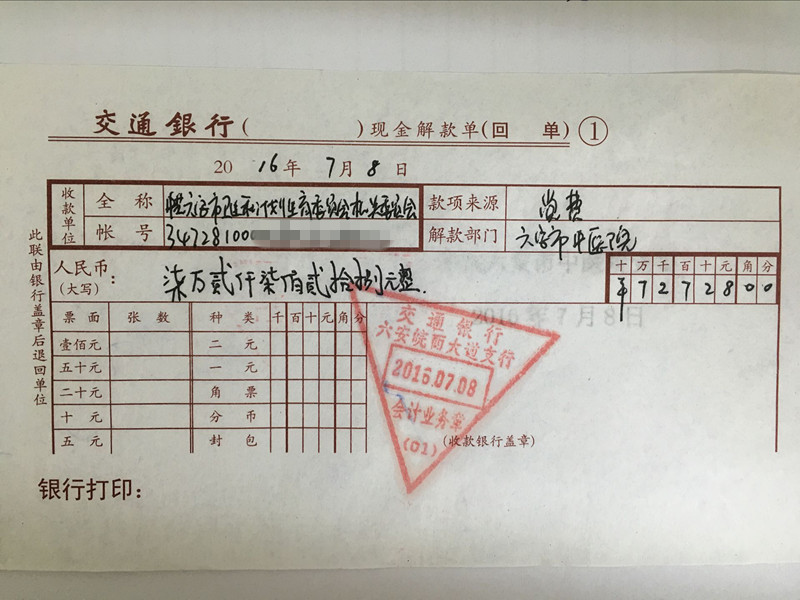 交通銀行( )现金解款单(回 单) ①
2016年7月8日
收款单位 全 称 六安市卫生和计划生育委员会机关委员会 款项来源 党费
帐 号 347281000 解款部门 六安市中医院
人民币:(大写) 柒万贰仟柒佰贰拾捌元整 十万千百十元角分
¥7272800
票 面 张 数 种 类 千百十元角分
壹佰元 二 元
五十元 一 元
二十元 角 票
十 元 分 币
五 元 封 包
此联由银行盖章后退回单位
2016年7月8日
交通银行
六安皖西大道支行
2016.07.08
会计业务章
(01)
(收款银行盖章)
银行打印: